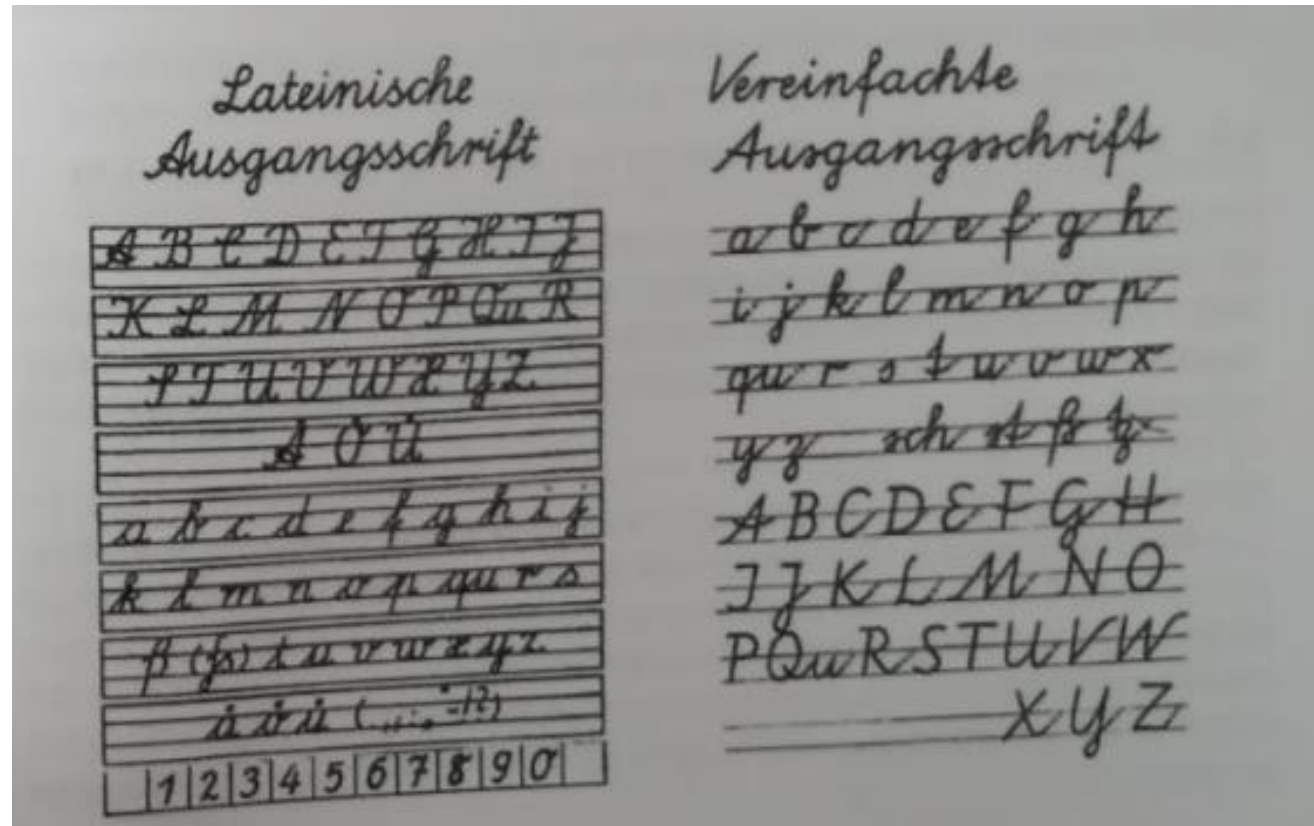 Lateinische
Ausgangsschrift
A B C D E F G H I J
K L M N O P Qu R
S T U V W X Y Z
Ä Ö Ü
a b c d e f g h i j
k l m n o p qu r s
ß (ſs) t u v w x y z
ä ö ü
1 2 3 4 5 6 7 8 9 0
Vereinfachte
Ausgangsschrift
a b c d e f g h
i j k l m n o p
qu r s t u v w x
y z sch st ß tz
A B C D E F G H
I J K L M N O
P Qu R S T U V W
X Y Z